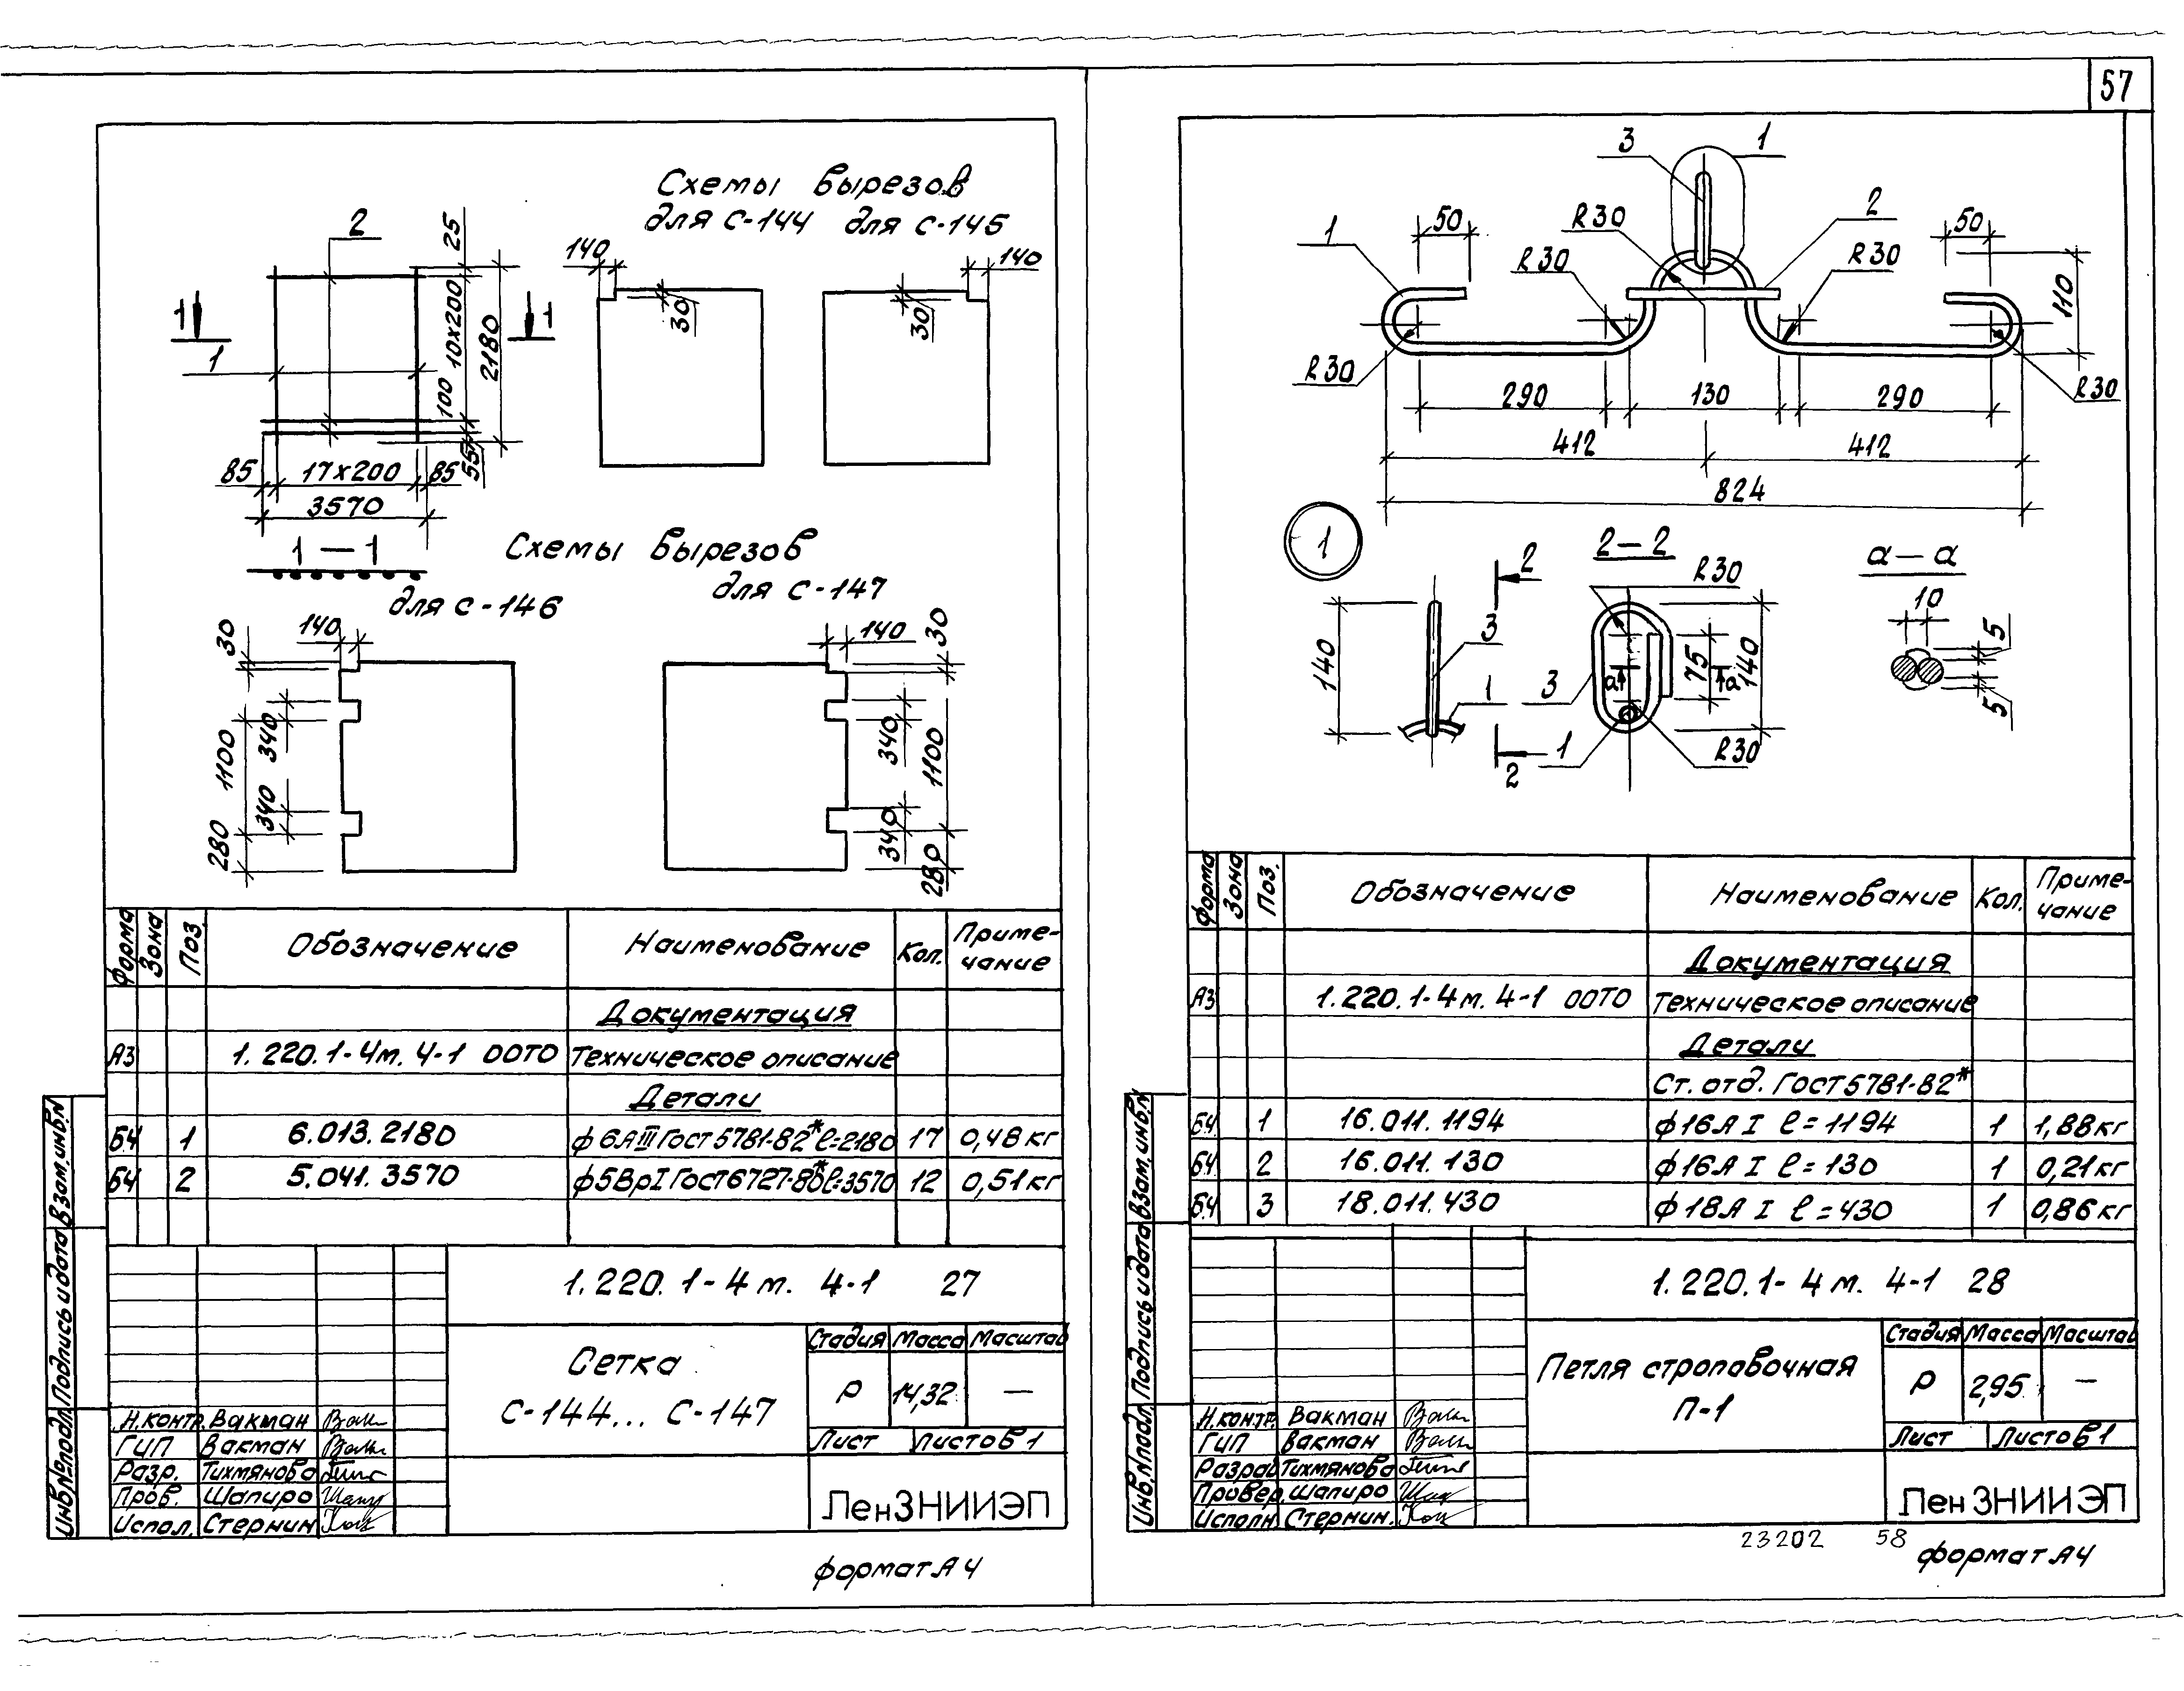 57
Схемы вырезов
для С-144 для С-145
2
25
10х200
2180
100
55
1
1
1
85 17х200 85
3570
140
30
140
30
1-1
Схемы вырезов
для С-146
для С-147
30
140
340
1100
340
280
140
30
340
1100
340
280
Форма Зона Поз. Обозначение Наименование Кол. Приме-
чание
Документация
А3 1.220.1-4м. 4-1 00ТО Техническое описание
Детали
БЧ 1 6.013.2180 ф6АIII ГОСТ 5781-82* ℓ=2180 17 0,48кг
БЧ 2 5.041.3570 ф5ВрI ГОСТ 6727-80* ℓ=3570 12 0,51кг
1.220.1-4м. 4-1 27
Сетка
С-144... С-147
Стадия Масса Масштаб
Р 14,32 —
Лист Листов 1
ЛенЗНИИЭП
Н.контр. Вакман
ГИП Вакман
Разр. Тихмянова
Пров. Шапиро
Испол. Стернин
Инв.№подл. Подпись и дата Взам.инв.№
формат А4
3
1
1
50
R30
R30
2
R30
50
110
R30
R30
290 130 290
412 412
824
1
2
140
3
1
2
2-2
R30
3
а
75
а
140
1
R30
а-а
10
5
5
Форма Зона Поз. Обозначение Наименование Кол. Приме-
чание
Документация
А3 1.220.1-4м. 4-1 00ТО Техническое описание
Детали
Ст. отд. ГОСТ 5781-82*
БЧ 1 16.011.1194 ф16АI ℓ=1194 1 1,88кг
БЧ 2 16.011.130 ф16АI ℓ=130 1 0,21кг
БЧ 3 18.011.430 ф18АI ℓ=430 1 0,86кг
1.220.1-4м. 4-1 28
Петля строповочная
П-1
Стадия Масса Масштаб
Р 2,95 —
Лист Листов 1
ЛенЗНИИЭП
Н.контр. Вакман
ГИП Вакман
Разраб Тихмянова
Провер. Шапиро
Исполн. Стернин
Инв.№подл. Подпись и дата Взам.инв.№
23202 58
формат А4